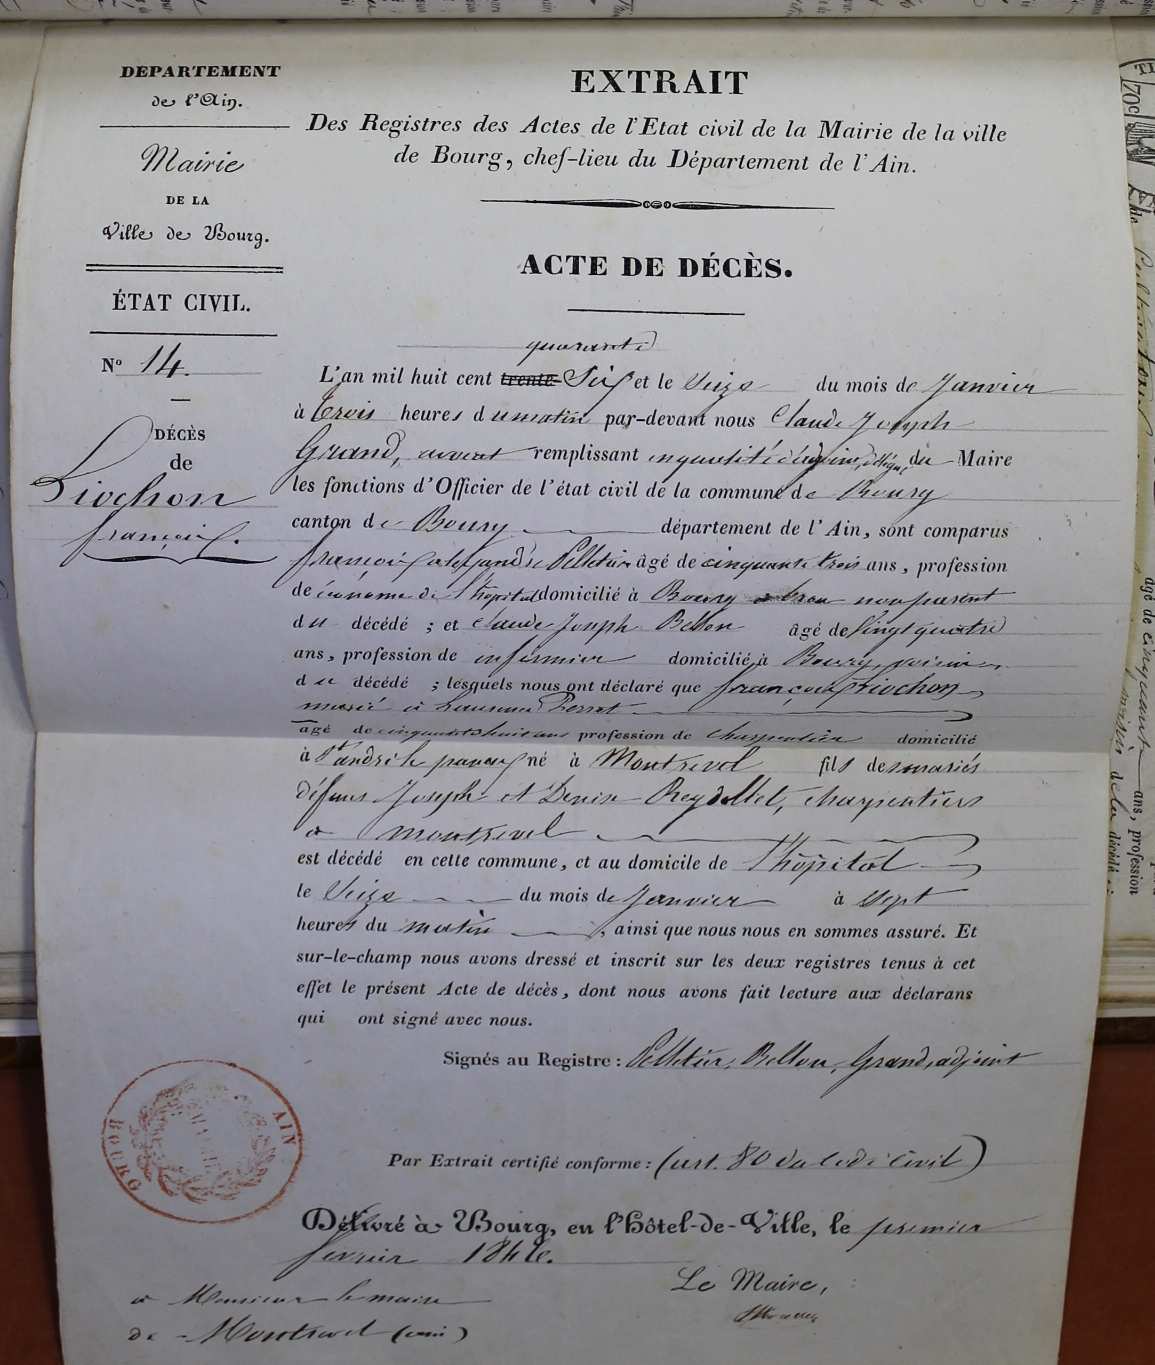 DEPARTEMENT
de l'Ain.
Mairie
DE LA
Ville de Bourg.
ÉTAT CIVIL.
No 14.
DÉCÈS
de
Piochon
françois.
EXTRAIT
Des Registres des Actes de l'Etat civil de la Mairie de la ville
de Bourg, chef-lieu du Département de l'Ain.
ACTE DE DÉCÈS.
quarante
L'an mil huit cent trente Six et le Seize du mois de Janvier
à trois heures du matin par-devant nous Claude Joseph
Grand, avocat remplissant en qualité d'adjoint, délégué, du Maire
les fonctions d'Officier de l'état civil de la commune de Bourg
canton de Bourg département de l'Ain, sont comparus
françois alexandre Pelletier âgé de cinquante trois ans, profession
de économe de l'hôpital domicilié à Bourg non parent
du décédé ; et claude Joseph Bellon âgé de vingt quatre
ans, profession de infirmier domicilié à Bourg, voisin
du décédé ; lesquels nous ont déclaré que françois Piochon
marié à Perret
âgé de cinquante huit ans profession de charpentier domicilié
à St andré le panoux né à Montrevel fils des mariés
défunts Joseph et Denise Reydellet, charpentiers
à montrevel
est décédé en cette commune, et au domicile de l'hôpital
le Seize du mois de Janvier à sept
heures du matin , ainsi que nous nous en sommes assuré. Et
sur-le-champ nous avons dressé et inscrit sur les deux registres tenus à cet
effet le présent Acte de décès, dont nous avons fait lecture aux déclarans
qui ont signé avec nous.
Signés au Registre : Pelletier, Bellon, Grand, adjoint
BOURG AIN
Par Extrait certifié conforme : (art. 80 du code Civil)
Délivré à Bourg, en l'Hôtel-de-Ville, le premier
fevrier 1846.
Le Maire,
à Monsieur le maire
de Montrevel (ain)
agé de cinquante ans, profession
de la décédé